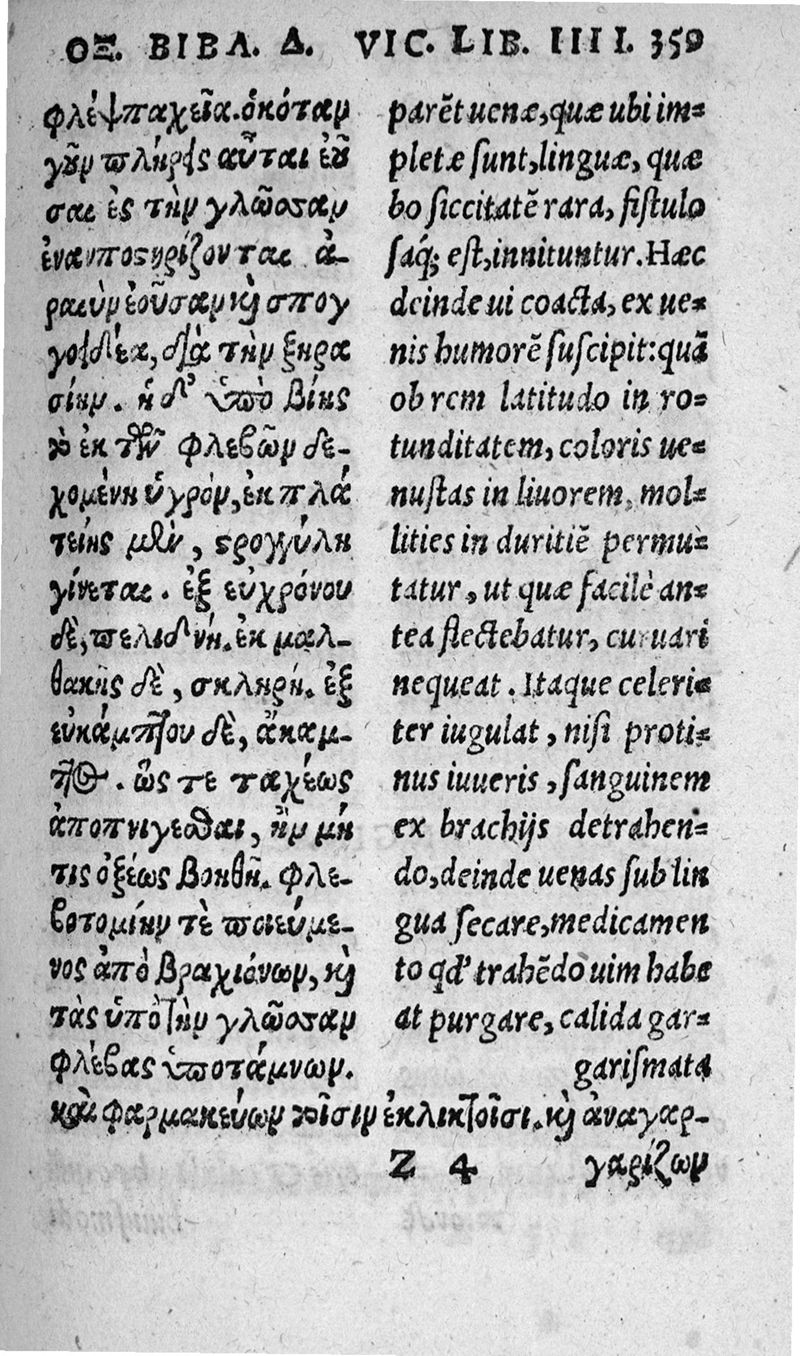 ΟΞ. ΒΙΒΛ. Δ. VIC. LIB. IIII. 359
φλὲψ παχεῖα. ὁκόταν
γοῦν πλήρης αὗται ἐοῦ
σαι ἐς τὴν γλῶσσαν
ἐναποστηρίζονται ἀ-
ραιὴν ἐοῦσαν καὶ σπογ
γοειδέα, διὰ τὴν ξηρα
σίην. ἡ δ' ὑπὸ βίης
τὸ ἐκ τῶν φλεβῶν δε-
χομένη ὑγρόν, ἐκ πλα
τείης μὲν, στρογγύλη
γίνεται. ἐξ εὐχρόνου
δὲ, πελιδνή. ἐκ μαλ-
θακῆς δὲ, σκληρή. ἐξ
εὐκάμπτου δὲ, ἄκαμ-
πτος. ὥς τε ταχέως
ἀποπνίγεσθαι, ἢν μή
τις ὀξέως βοηθῇ. φλε-
βοτομίην τὲ ποιεύμε-
νος ἀπὸ βραχιόνων, καὶ
τὰς ὑπὸ τὴν γλῶσσαν
φλέβας ὑποτάμνων.
καὶ φαρμακεύων τοῖσιν ἐκλικτοῖσι. καὶ ἀναγαρ-
parēt uenæ, quæ ubi im=
pletæ sunt, linguæ, quæ
bo siccitatē rara, fistulo
saq; est, innituntur. Hæc
deinde ui coacta, ex ue=
nis humorē suscipit: quā
ob rem latitudo in ro=
tunditatem, coloris ue=
nustas in liuorem, mol=
lities in duritiē permu=
tatur, ut quæ facilè an=
tea flectebatur, curuari
nequeat. Itaque celeri=
ter iugulat, nisi proti=
nus iuueris, sanguinem
ex brachijs detrahen=
do, deinde uenas sub lin
gua secare, medicamen
to qđ trahēdo uim habe
at purgare, calida gar=
garismata
Z 4 γαρίζων